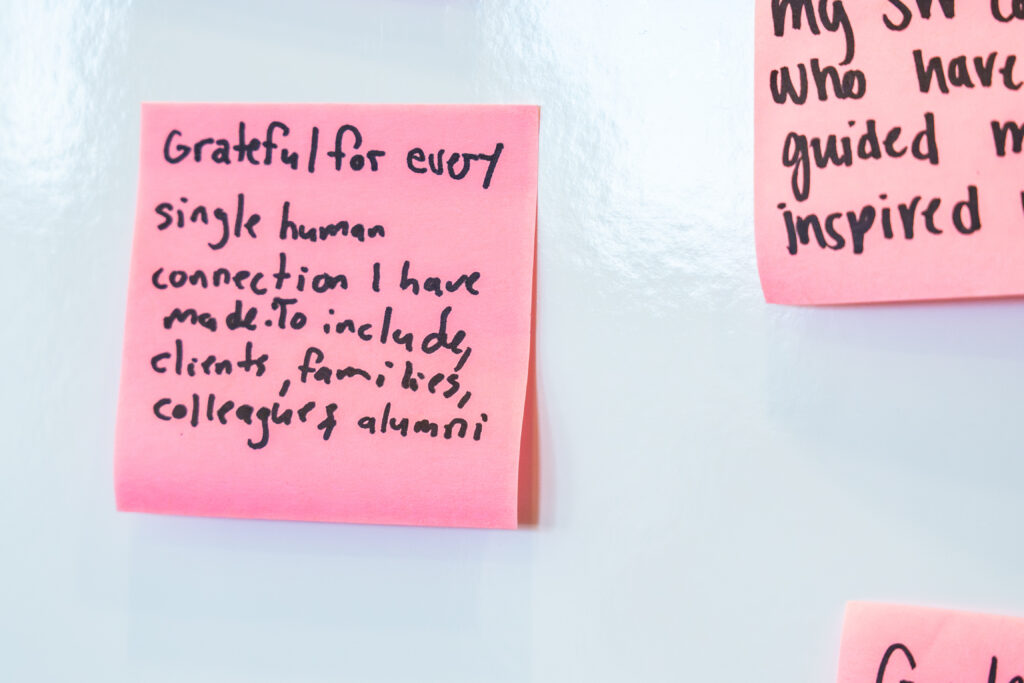 Grateful for every
single human
connection I have
made. To include,
clients, families,
colleagues, alumni
my SW
who have
guided
inspired